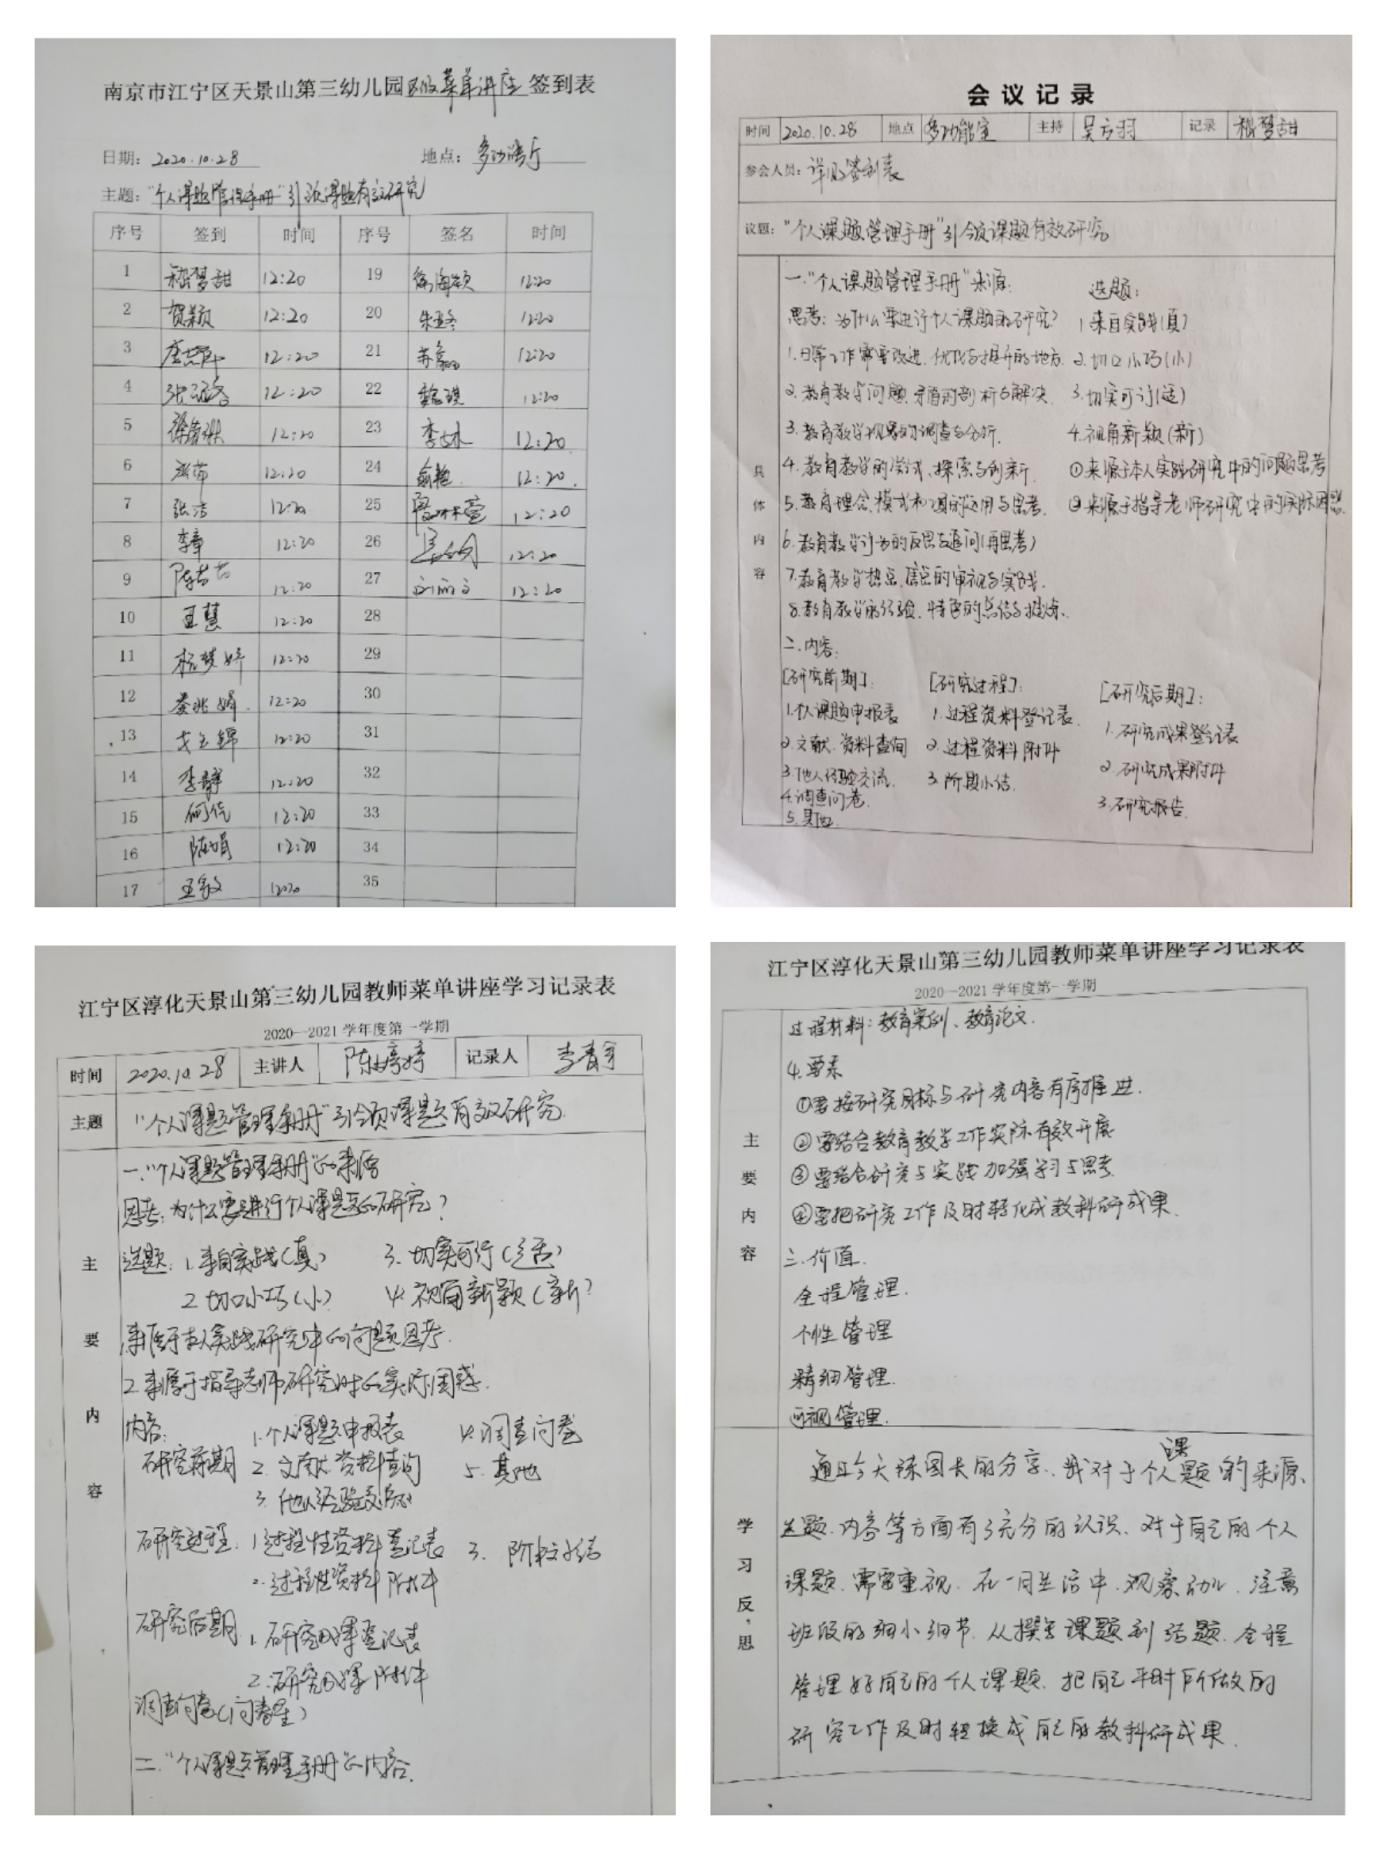 南京市江宁区天景山第三幼儿园区级菜单讲座签到表
日期：2020.10.28 地点：多功能厅
主题：“个人课题管理手册”引领课题有效研究
序号 签到 时间 序号 签名 时间
1 嵇梦甜 12:20 19 12:20
2 贺颖 12:20 20 12:20
3 12:20 21 12:20
4 12:20 22 魏琪 12:20
5 12:20 23 12:20
6 12:20 24 俞艳 12:20
7 张洁 12:20 25 12:20
8 李章 12:20 26 12:20
9 12:20 27 12:20
10 王慧 12:20 28
11 12:20 29
12 12:20 30
13 12:20 31
14 李静 12:20 32
15 何佳 12:20 33
16 陈娟 12:20 34
17 王敏 12:20 35
会议记录
时间 2020.10.28 地点 多功能室 主持 吴方羽 记录 嵇梦甜
参会人员：详见签到表
议题：“个人课题管理手册”引领课题有效研究
具体内容
一.“个人课题管理手册”来源：
思考：为什么要进行个人课题的研究？
1.日常工作需要改进、优化与提升的地方
2.教育教学问题、矛盾的剖析与解决
3.教育教学现象的调查与分析.
4.教育教学的尝试、探索与创新
5.教育理念、模式和 的运用与思考.
6.教育教学行为的反思与追问(再思考)
7.教育教学热点、 的审视与实践.
8.教育教学的经验、特色的总结与提炼.
选题：
1.来自实践(真)
2.切口小巧(小)
3.切实可行(适)
4.视角新颖(新)
①来源于本人实践研究中的问题思考
②来源于指导老师研究中的实际困惑.
二.内容：
[研究前期]：
1.个人课题申报表
2.文献、资料查询
3.他人经验交流.
4.调查问卷.
5.其他
[研究过程]：
1.过程资料登记表.
2.过程资料附件
3.阶段小结.
[研究后期]：
1.研究成果登记表
2.研究成果附件
3.研究报告.
江宁区淳化天景山第三幼儿园教师菜单讲座学习记录表
2020—2021学年度第一学期
时间 2020.10.28 主讲人 陈婷婷 记录人 李静
主题 “个人课题管理手册”引领课题有效研究.
主要内容
一.“个人课题管理手册”的来源
思考：为什么要进行个人课题的研究？
选题：1.来自实践(真) 3.切实可行(适)
2.切口小巧(小) 4.视角新颖(新)
来源于本人实践研究中的问题思考.
2.来源于指导老师研究时的实际困惑.
内容： 1.个人课题申报表 4.调查问卷
研究前期 2.文献、资料查询 5.其他
3.他人经验交流
研究过程 1.过程性资料登记表 3.阶段小结
2.过程性资料附件
研究后期 1.研究成果登记表
2.研究成果附件
调查问卷(问卷星)
二.“个人课题管理手册”的内容.
江宁区淳化天景山第三幼儿园教师菜单讲座学习记录表
2020—2021学年度第一学期
主要内容
过程材料：教育案例、教育论文.
4.要素
①要按研究目标与研究内容有序推进.
②要结合教育教学工作实际有效开展
③要结合研究与实践加强学习与思考.
④要把研究工作及时转化成教科研成果.
三.价值.
全程管理.
个性管理
精细管理.
可视管理.
学习反思
通过今天陈园长的分享、我对于个人课题的来源、
主题、内容等方面有了充分的认识、对于自己的个人
课题、需要重视、在一日生活中、观察幼儿、注意
班级的细小细节、从撰写课题到结题、全程
管理好自己的个人课题、把自己平时所做的
研究工作及时转换成自己的教科研成果.